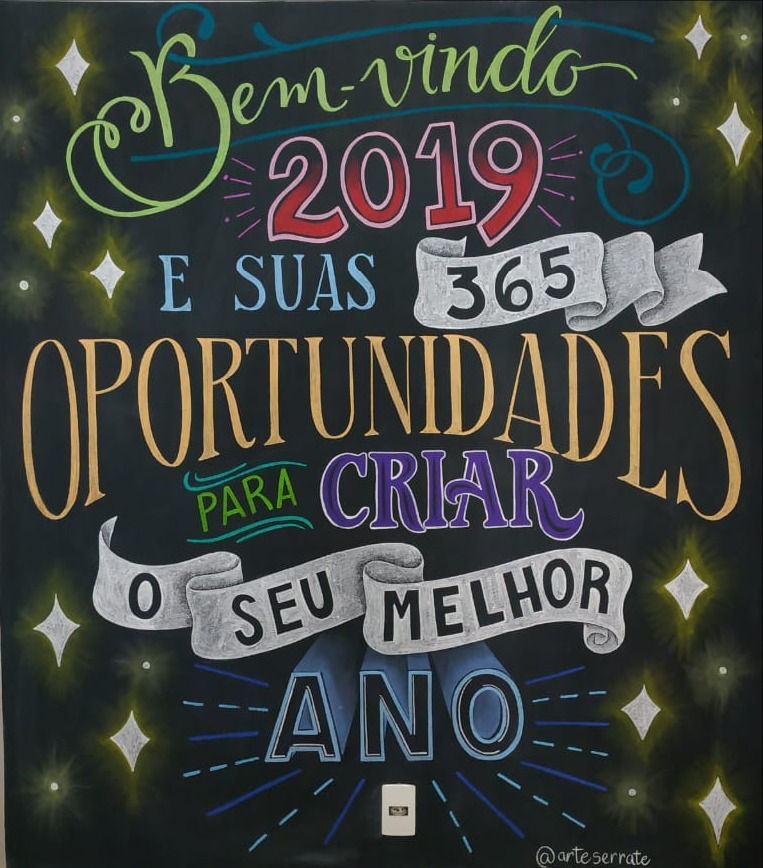 Bem-vindo
2019
E SUAS 365
OPORTUNIDADES
PARA CRIAR
O SEU MELHOR
ANO
@arteserrate